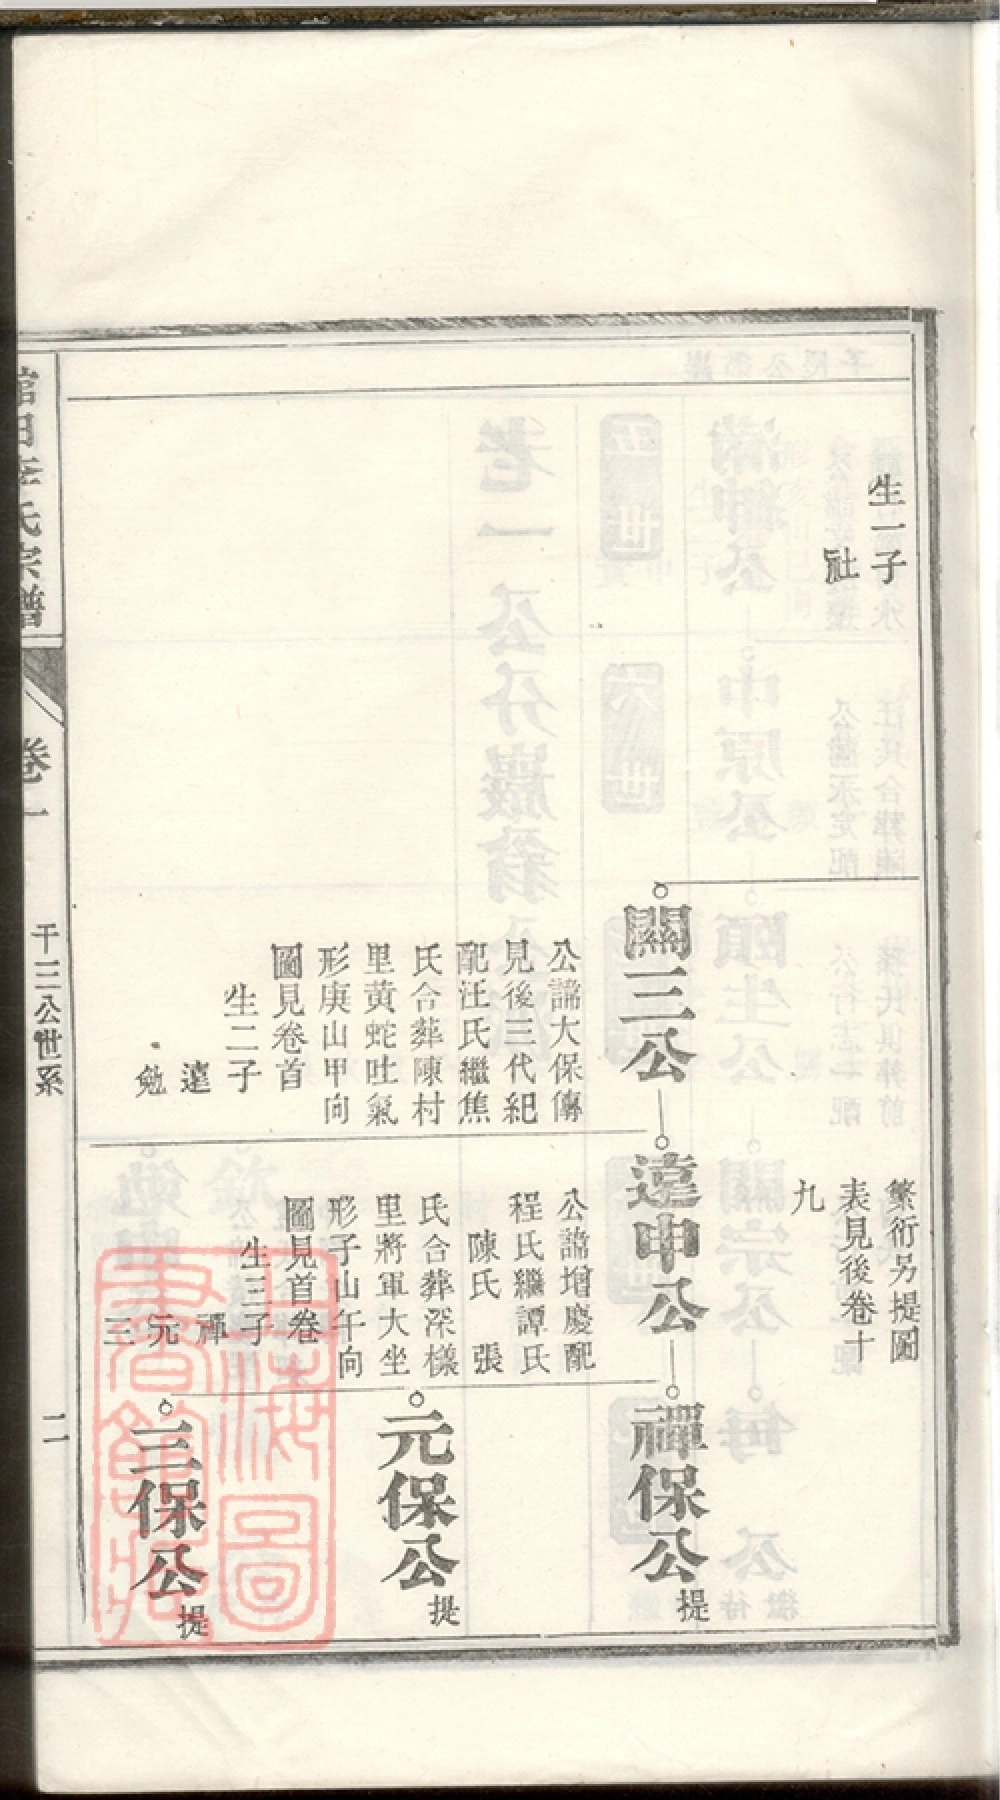 生一子
社
繁衍另提圖
表見後卷十
九
關三公
公諱大保傳
見後三代紀
配汪氏繼焦
氏合葬陳村
里黄蛇吐氣
形庚山甲向
圖見卷首
生二子
達
勉
達申公
公諱增慶配
程氏繼譚氏
陳氏 張
氏合葬深樣
里將軍大坐
形子山午向
圖見首卷
生三子
禪
元
三
禪保公
提
元保公
提
三保公
提
氏宗譜
卷一
千三公世系
二
上海圖
書館藏